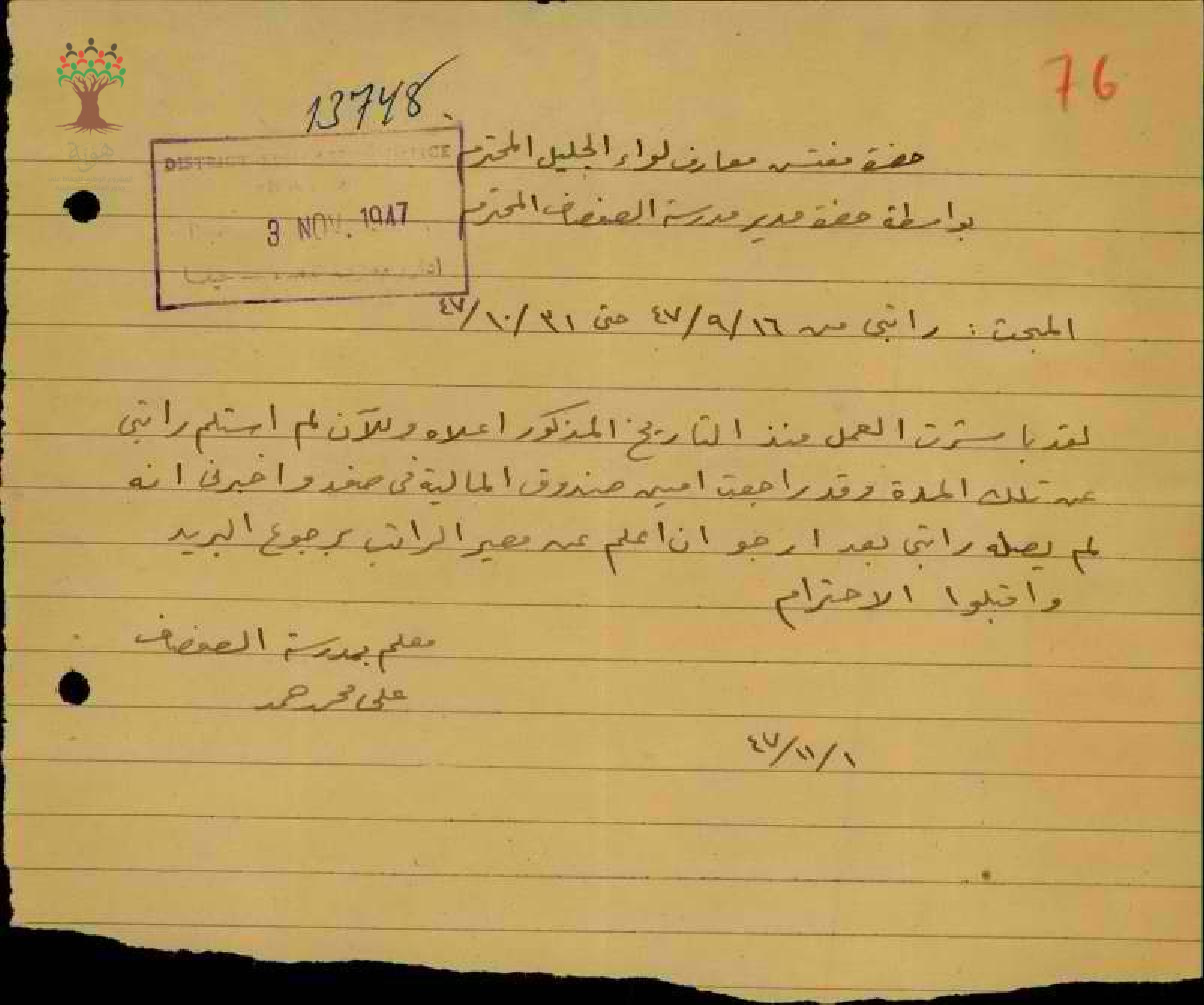 76
13748
حضرة مفتش معارف لواء الجليل المحترم
بواسطة حضرة مدير مدرسة الصفصاف المحترم
DISTRICT
3 NOV. 1947
حيفا
المبحث : راتبي من ١٦/٩/٤٧ حتى ٣١/١٠/٤٧
لقد باشرت العمل منذ التاريخ المذكور اعلاه وللآن لم استلم راتبي
عن تلك المدة وقد راجعت امين صندوق المالية في صفد واخبرني انه
لم يصله راتبي بعد ارجو ان اعلم عن مصير الراتب برجوع البريد
واقبلوا الاحترام
معلم بمدرسة الصفصاف
علي محمد حمد
١/١١/٤٧